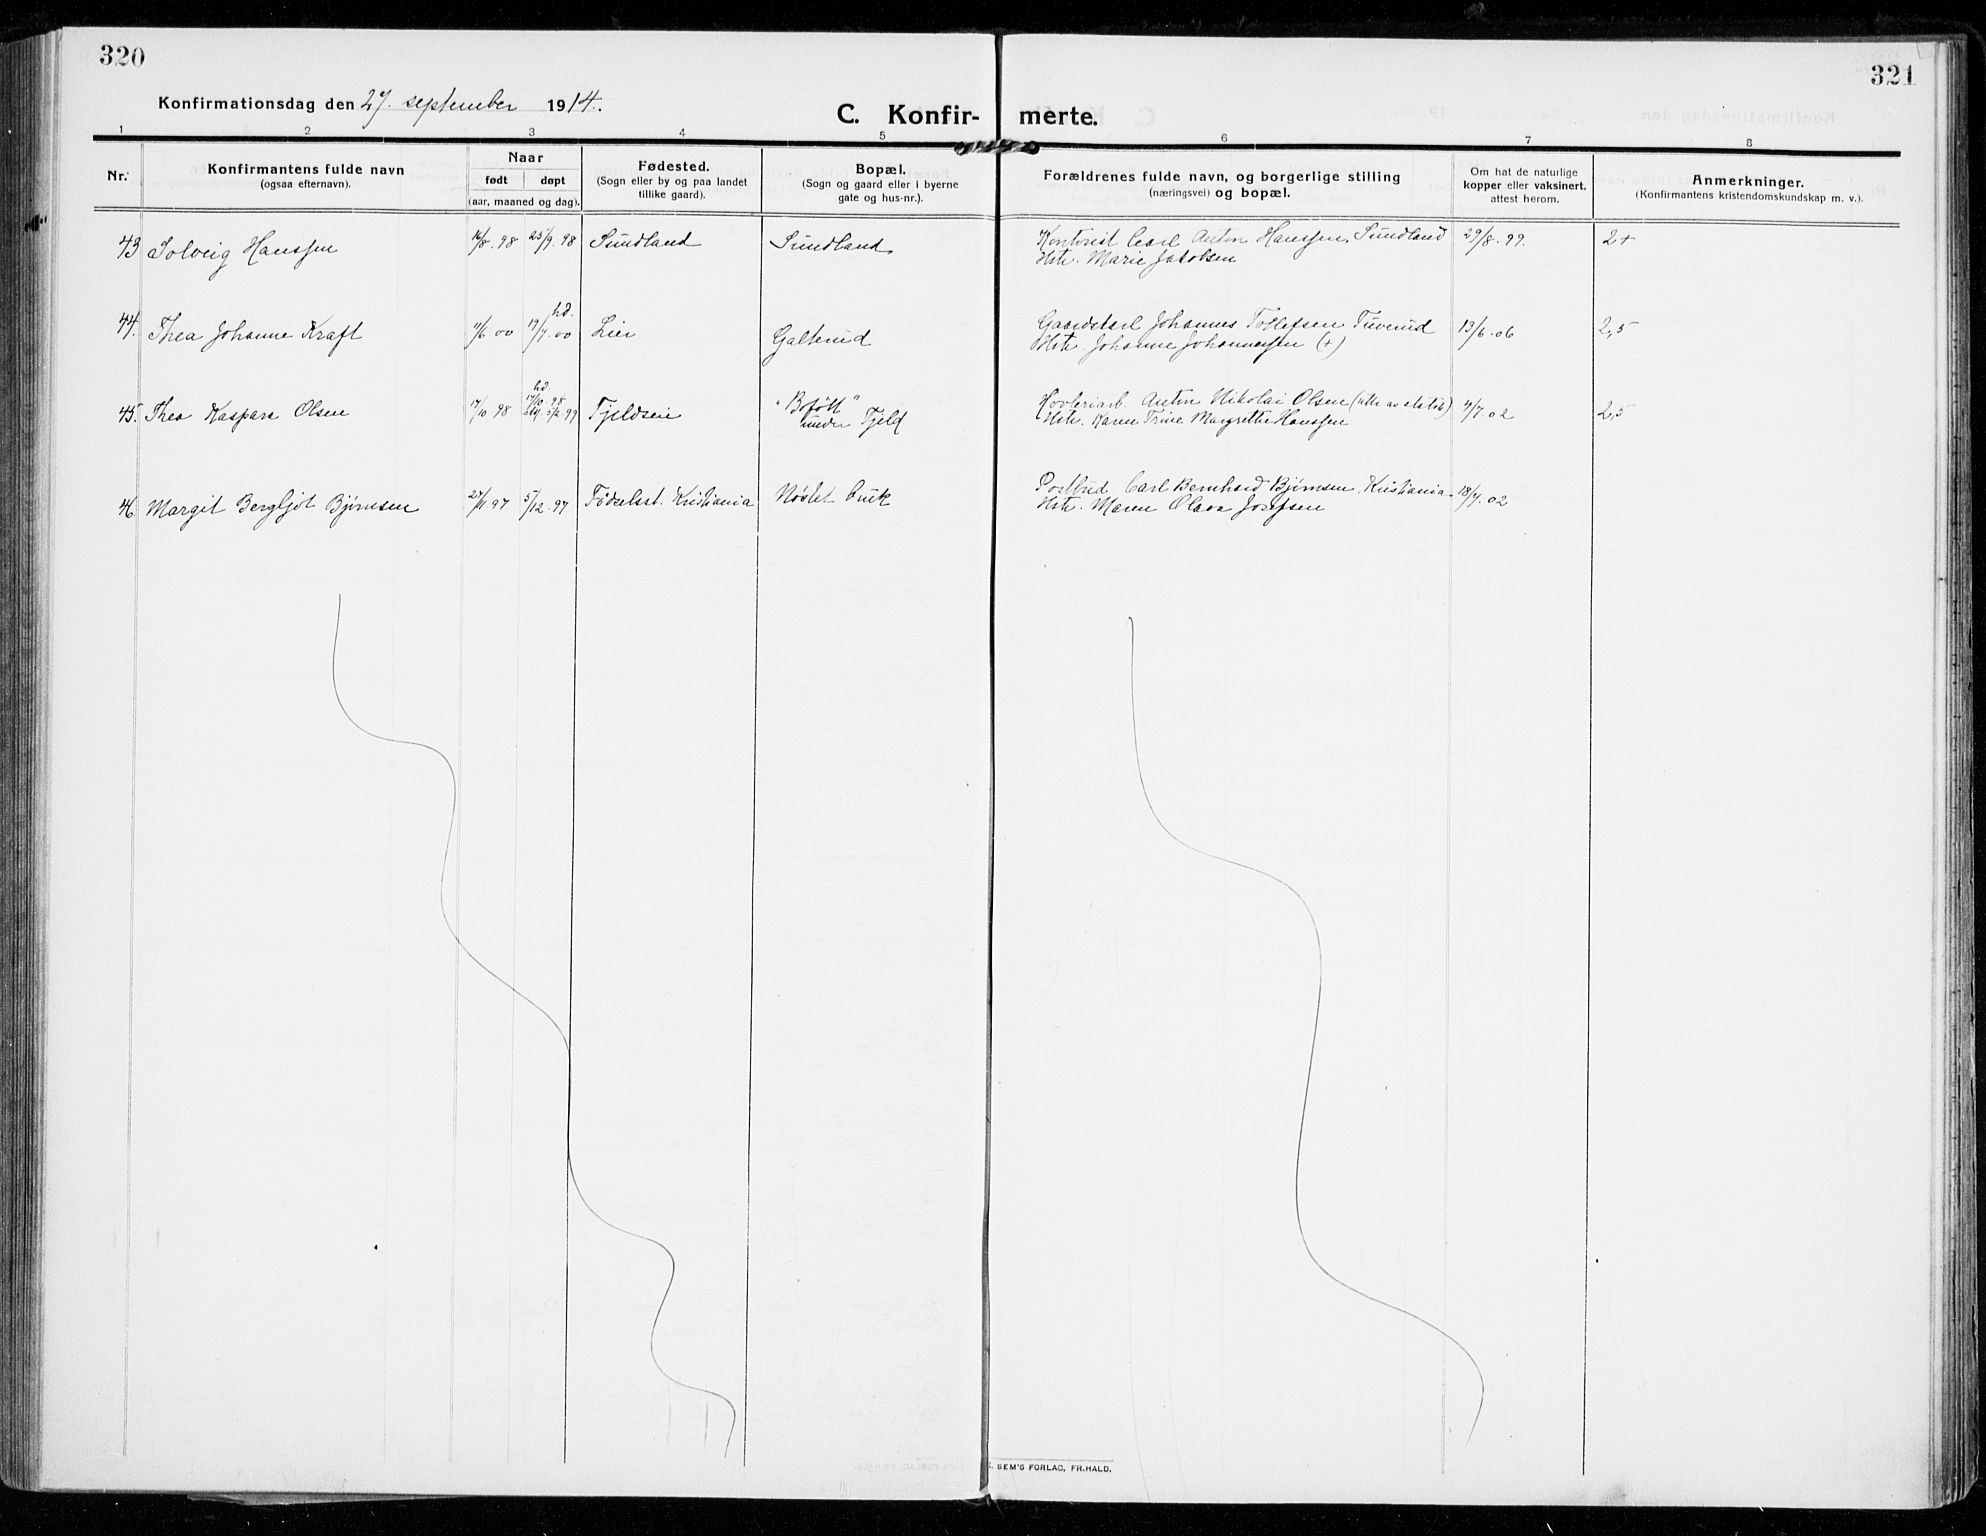 320
321
Konfirmationsdag den 27. september 1914.
C. Konfir- merte.
1 2 3 4 5 6 7 8
Nr.
Konfirmantens fulde navn
(ogsaa efternavn).
Naar
født døpt
(aar, maaned og dag).
Fødested.
(Sogn eller by og paa landet
tillike gaard).
Bopæl.
(Sogn og gaard eller i byerne
gate og hus-nr.).
Forældrenes fulde navn, og borgerlige stilling
(næringsvei) og bopæl.
Om hat de naturlige
kopper eller vaksinert,
attest herom.
Anmerkninger.
(Konfirmantens kristendomskundskap m. v.).
43 Solveig Hanssen 16/8. 98 25/9. 98 Sundland Sundland Kontorist Carl Anton Hanssen, Sundland 29/8. 99. 2+
Hstr. Marie Jakobsen
44. Thea Johanne Kraft 11/6 00 hd. 19/7. 00 Lier Galterud Gaardskarl Johannes Tollefsen Tuverud 13/6. 06 2,5
Hstr. Johanne Johannessen (+)
45. Thea Kaspara Olsen 17/10 98 hd. 17/10. 98 5/2. 99 Fjeldsein under Fjeld Høvleriarb. Anton Nikolai Olsen 4/7. 02 2,5
Hstr. Karen Trine Margrethe Hanssen
46. Margit Bergljot Bjørnsen 27/11 97 5/12. 97 Fødselsst. Kristiania Nøstet bruk Postbud Carl Bernhard Bjørnsen, Kristiania 18/7. 02
Hstr. Maren Olava Josefsen
SEM'S FORLAG, FR. HALD.